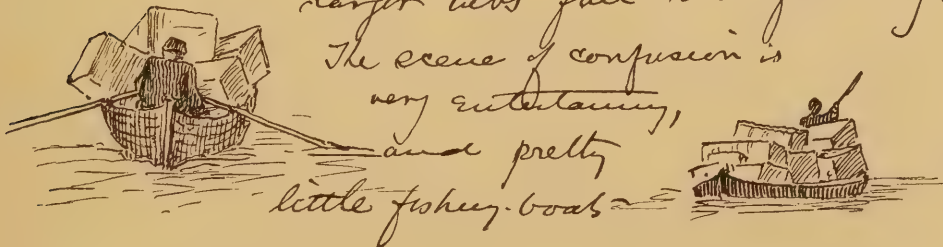 The scene of confusion is
very entertaining,
and pretty
little fishing-boats